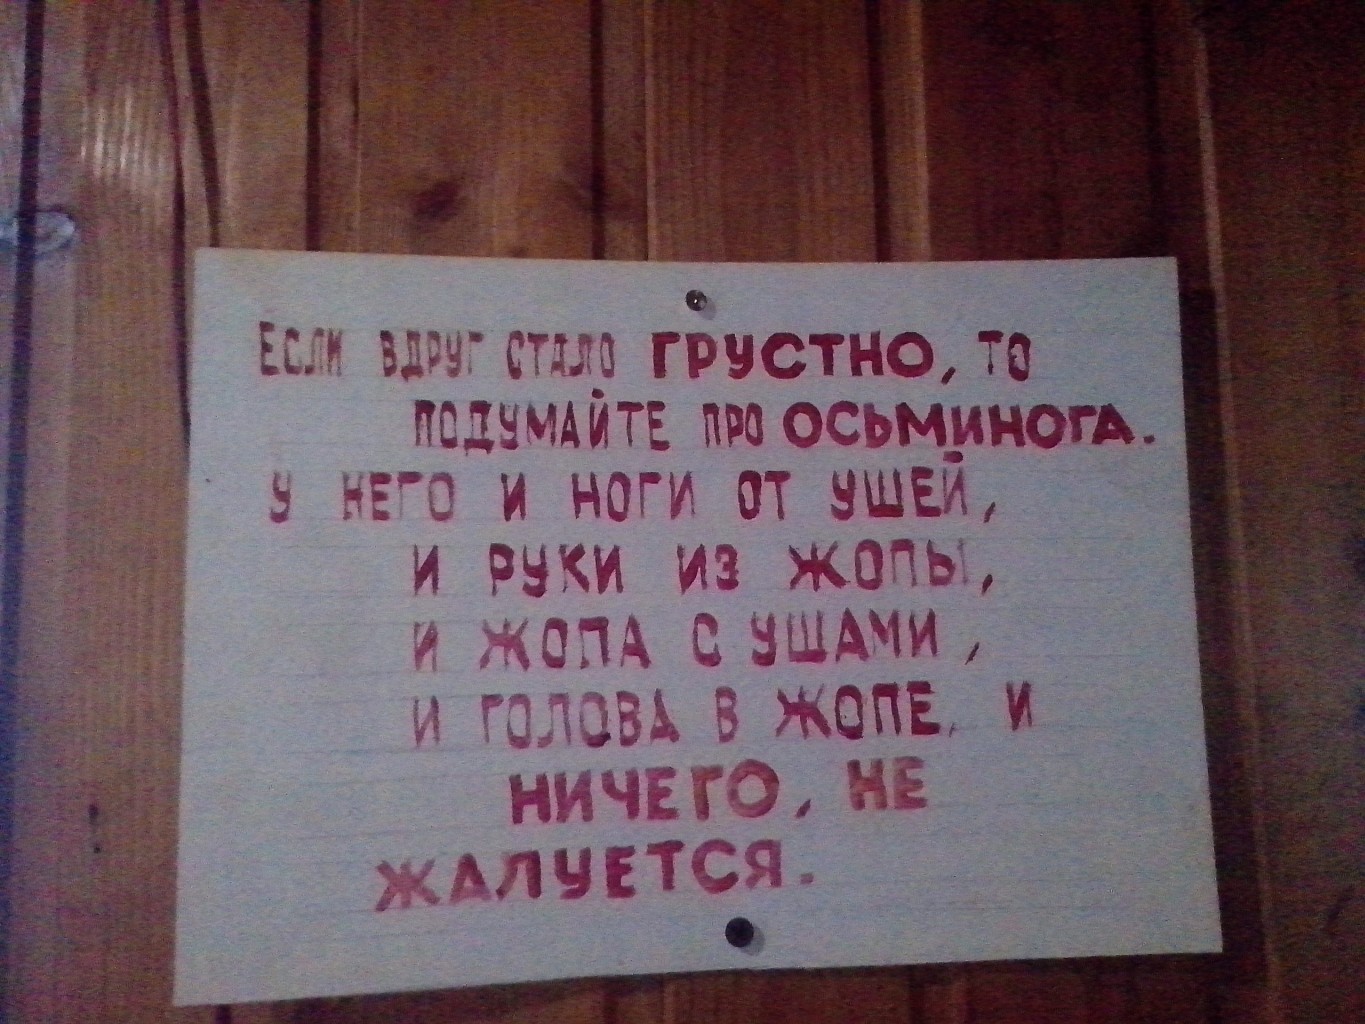 ЕСЛИ ВДРУГ СТАЛО ГРУСТНО, ТО
ПОДУМАЙТЕ ПРО ОСЬМИНОГА.
У НЕГО И НОГИ ОТ УШЕЙ,
И РУКИ ИЗ ЖОПЫ,
И ЖОПА С УШАМИ,
И ГОЛОВА В ЖОПЕ, И
НИЧЕГО, НЕ
ЖАЛУЕТСЯ.